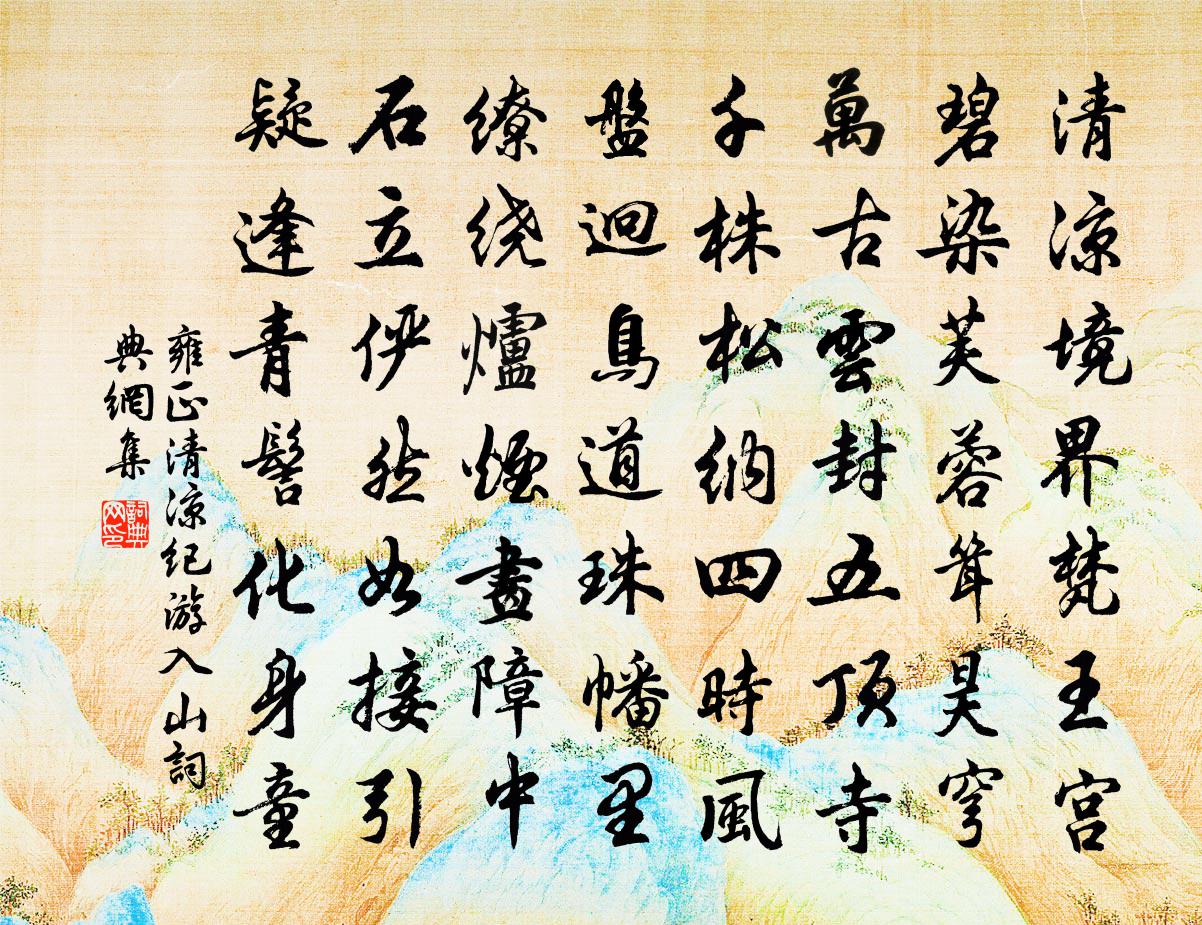 清凉境界梵王宫
碧染芙蓉耸昊穹
萬古雲封五頂寺
千株松納四時風
盤迴鳥道珠幡里
缭绕爐煙畫障中
石立俨然如接引
疑逢青髻化身童
雍正清凉纪游入山詞
典網集
詞典
网印